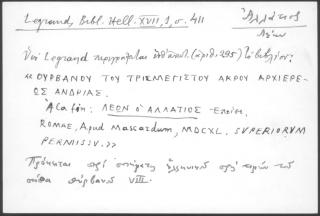 Legrand, Bibl. Hell. XVII, 1, σ. 411
Ἀλλάτιος
Λέων
Ὑπὸ Legrand περιγράφεται (ἀριθ. 295) τὸ βιβλίον:
« ΟΥΡΒΑΝΟΥ ΤΟΥ ΤΡΙΣΜΕΓΙΣΤΟΥ ΑΚΡΟΥ ΑΡΧΙΕΡΕ-
ΩΣ ΑΝΔΡΙΑΣ.
ΛΕΩΝ Ο ΑΛΛΑΤΙΟΣ
ROMAE, Apud Mascardum, MDCXL. SUPERIORUM
PERMISSV. »
Πρόκειται περὶ ποιήματος ἑλληνικοῦ πρὸς τιμὴν τοῦ
πάπα Οὐρβανοῦ VIII.